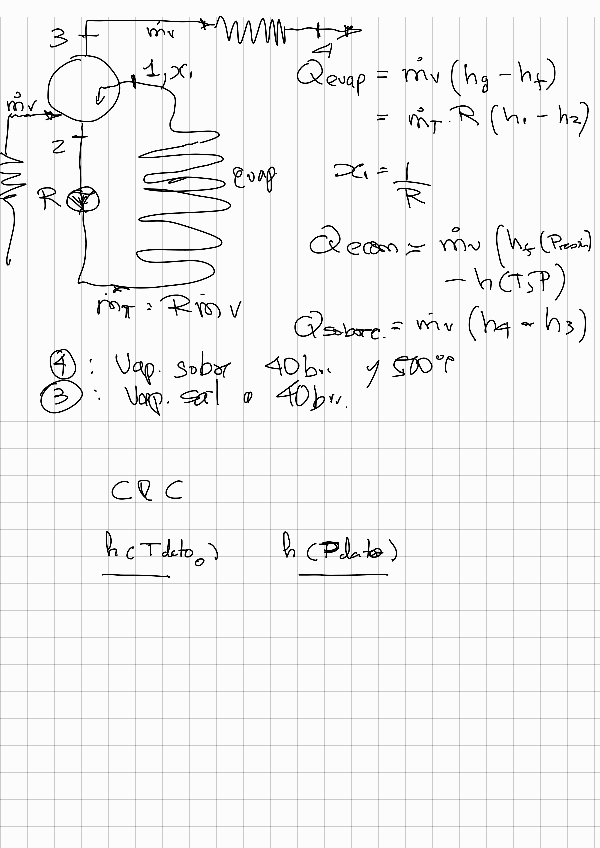 3
ṁv
4
1, x₁
ṁv
2
R
evap
ṁT = R ṁv
Qevap = ṁv (hg - hf)
= ṁT · R (h₁ - h₂)
x₁ = 1/R
Qecon = ṁv (hf (Presión)
- h(T,P)
Qsobrc. = ṁv (h4 - h3)
④ : Vap. sobr 40 bar y 500°
③ : Vap. sat a 40 bar.
h(Tdato)
h(Pdato)